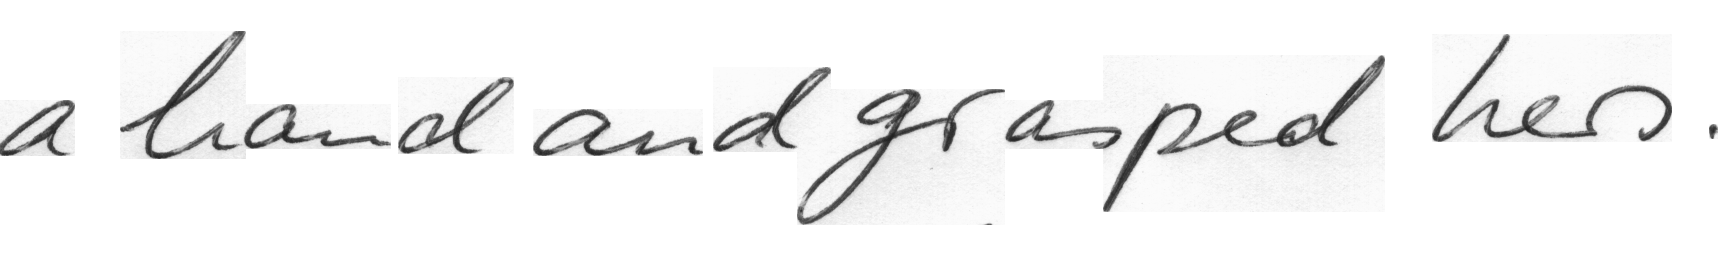 a hand and grasped hers.